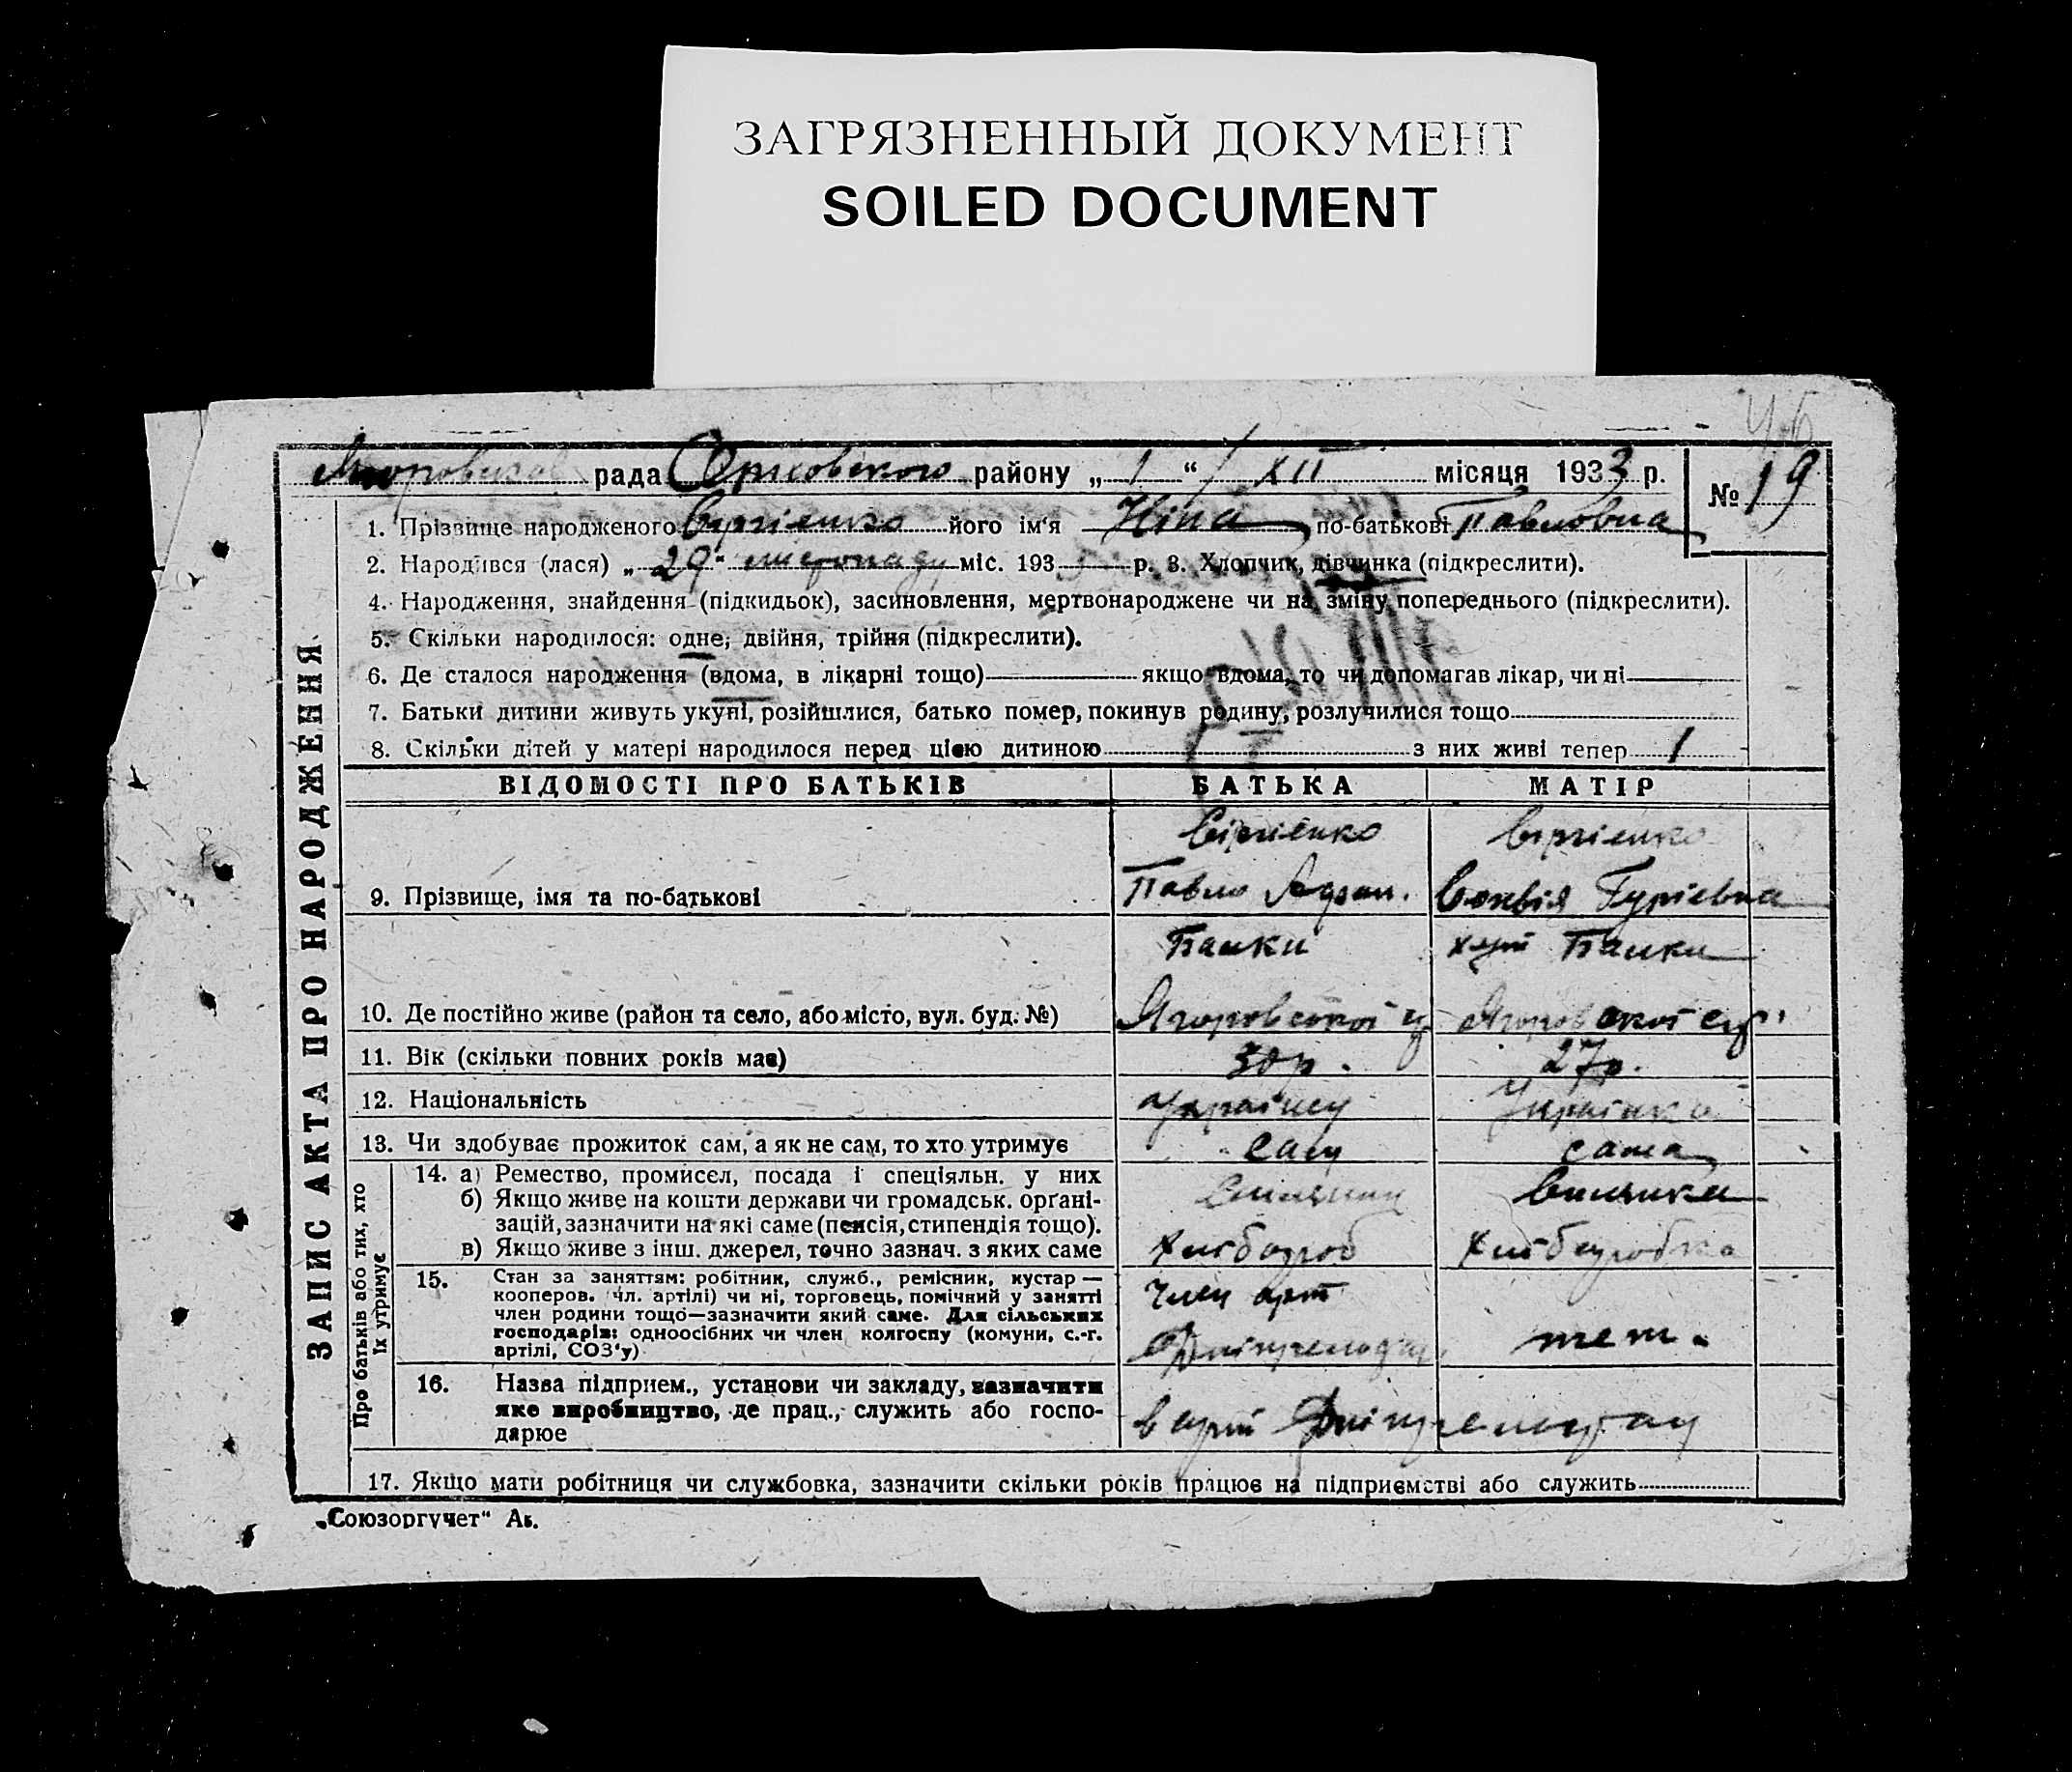 ЗАГРЯЗНЕННЫЙ ДОКУМЕНТ
SOILED DOCUMENT
46
рада району „ 1 “ XII місяця 1933 р.
№ 19
1. Прізвище народженого Сергіенко його ім‘я Ніна по-батькові Павловна
2. Народився (лася) „ 29 “ листопаду міс. 193 р. 3. Хлопчик, дівчинка (підкреслити).
4. Народження, знайдення (підкидьок), засиновлення, мертвонароджене чи на зміну попереднього (підкреслити).
5. Скільки народилося: одне, двійня, трійня (підкреслити).
6. Де сталося народження (вдома, в лікарні тощо) якщо вдома, то чи допомагав лікар, чи ні
7. Батьки дитини живуть укупі, розійшлися, батько помер, покинув родину, розлучилися тощо
8. Скільки дітей у матері народилося перед цією дитиною з них живі тепер 1
ЗАПИС АКТА ПРО НАРОДЖЕННЯ
ВІДОМОСТІ ПРО БАТЬКІВ БАТЬКА МАТІР
Сергіенко Сергіенко
9. Прізвище, імя та по-батькові Павло Гуріевна
Башки хут Башки
10. Де постійно живе (район та село, або місто, вул. буд. №)
11. Вік (скільки повних років має) 30 р. 27 р.
12. Національність Українец Українка
13. Чи здобуває прожиток сам, а як не сам, то хто утримує сам сама
Про батьків або тих, хто їх утримує
14. а) Ремество, промисєл, посада і спеціяльн. у них
б) Якщо живе на кошти держави чи громадськ. орґані-
зацій, зазначити на які саме (пенсія, стипендія тощо).
в) Якщо живе з інш. джерел, точно зазнач. з яких саме Хлібороб Хліборобка
15. Стан за заняттям: робітник, служб., ремісник, кустар —
кооперов. (чл. артілі) чи ні, торговець, помічний у занятті
член родини тощо—зазначити який саме. Для сільських
господарів: одноосібних чи член колгоспу (комуни, с.-г.
артілі, СОЗ‘у) Член арт теж.
16. Назва підприєм., установи чи закладу, зазначити
яке виробництво, де прац., служить або госпо-
дарює в арт
17. Якщо мати робітниця чи службовка, зазначити скільки років працює на підприємстві або служить
„Союзоргучет“